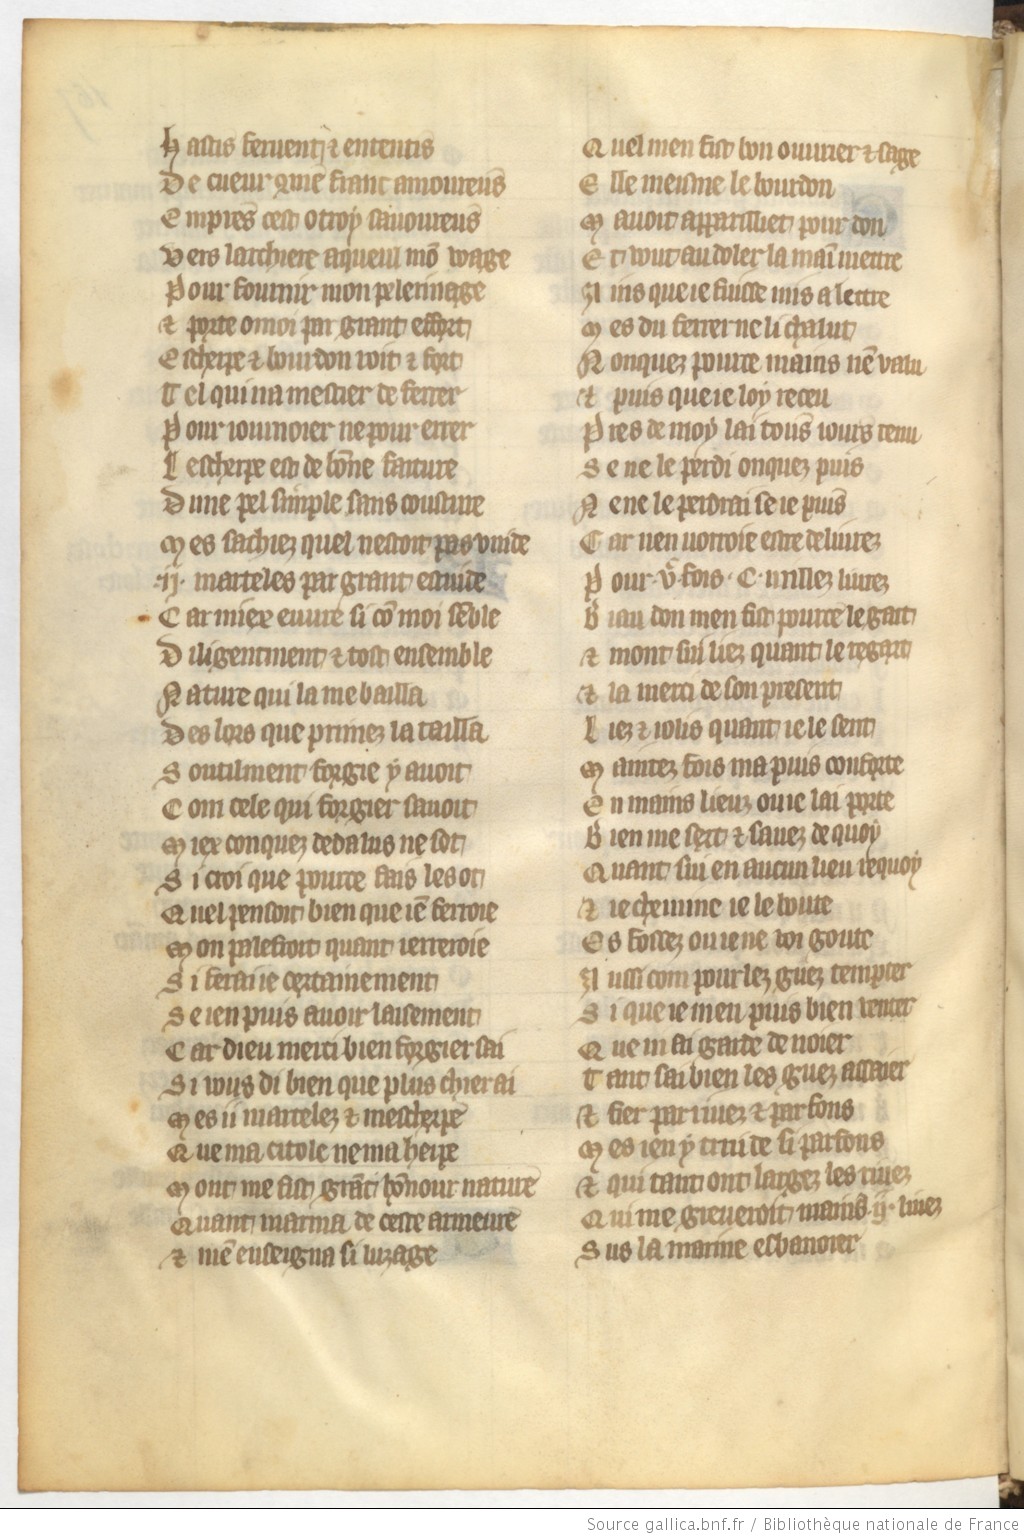 Hastis feruentz & ententis
De cueur qme franc amoureus
Empres cest otroy sauoureus
Vers larchiere aqueul mō voage
Pour fournir mon pelerinage
& porte o moi par grant effort
Escherpe & bourdon roit & fort
Tel qui na mestier de ferrer
Pour iournoier ne pour errer
Lescherpe est de bōne faiture
Dune pel simple sans cousture
Mes sachiez quel nestoit pas vuide
.ij. marteles par grant estuide
Car miex euure si cō moi sēble
Diligentment & tost ensemble
Nature qui la me bailla
Des lors que primez la tailla
Soutilment forgie y auoit
Com cele qui forgier sauoit
Miex conquez dedalus ne sot
Si croi que pource fais les ot
Quel pensoit bien que iē ferroie
Mon palefroit quant ierreroie
Si ferai ie certainement
Se ien puis auoir laisement
Car dieu merci bien forgier sai
Si vous di bien que plus chier ai
Mes ii martelez & mescherpe
Que ma citole ne ma herpe
Mout me fist grāt hōnour nature
Quant marma de ceste armeure
& mē enseigna si luzage
Quel men fist bon ouurier & sage
Elle meisme le bourdon
Mauoit apparilliet pour don
Et vout au doler la maī mettre
Ains que ie fuisse mis a lettre
Mes du ferrer ne li chalut
Nonquez pource mains nē valu
& puis que ie loy receu
Pres de moy lai tous iours tenu
Se ne le perdi onquez puis
Ne ne le perdrai se ie puis
Car nen vorroie estre deliurez
Pour .v. fois .C. millez liurez
Biau don men fist pource le gart
& mont sui liez quant le regart
& la merci de son present
Liez & iolis quant ie le sent
Maintez fois ma puis conforte
En mains lieuz ou ie lai porte
Bien me sert & sauez de quoy
Quant sui en aucun lieu requoy
& ie chemine ie le boute
Es fossez ou ie ne voi goute
Aussi com pour lez guez tempter
Si que ie men puis bien venter
Que ni ai garde de noier
Tant sai bien les guez assaier
& fier par riuez & par fons
Mes ien y truide si parfons
& qui tant ont largez les riuez
Qui me greueroit mains .ij. liuez
Sus la marine esbanoier
Source gallica.bnf.fr / Bibliothèque nationale de France